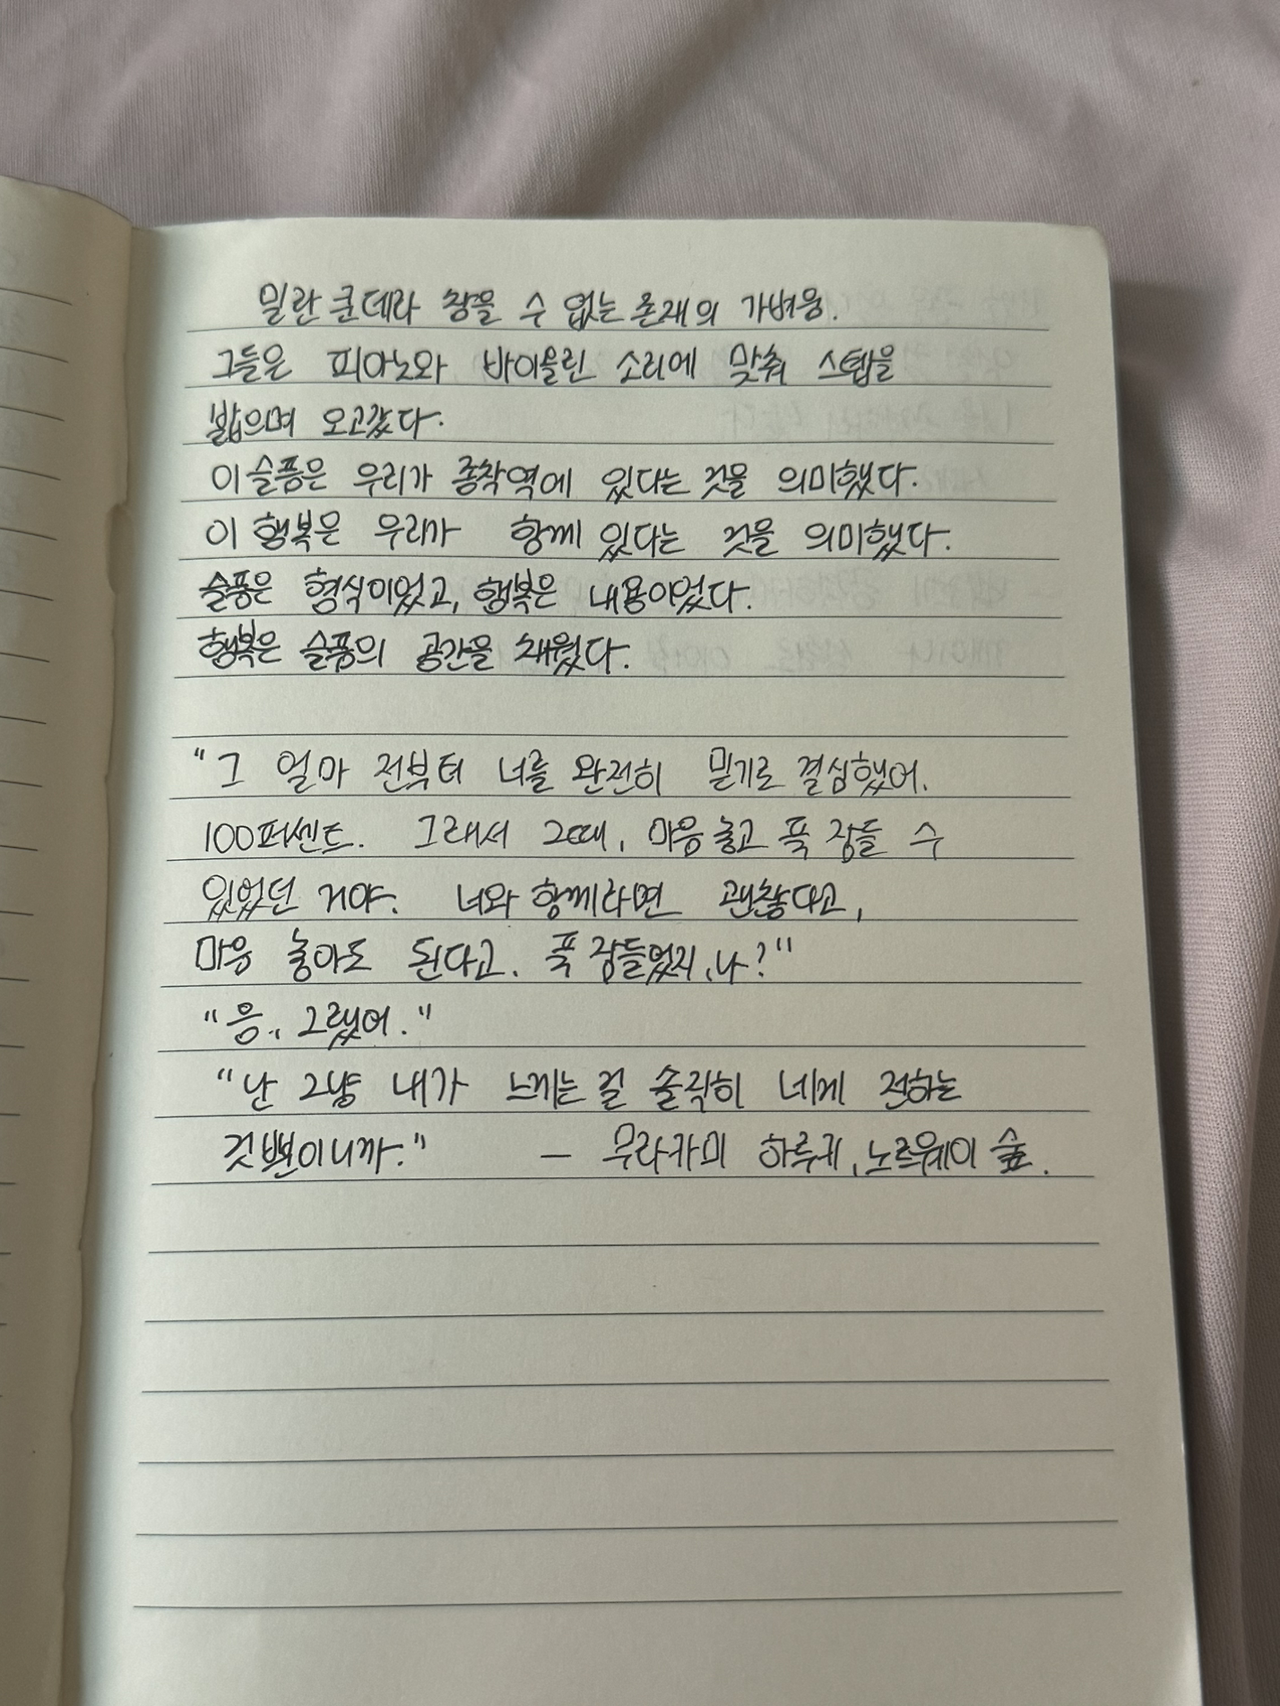 밀란 쿤데라 참을 수 없는 존재의 가벼움.
그들은 피아노와 바이올린 소리에 맞춰 스텝을
밟으며 오고갔다.
이 슬픔은 우리가 종착역에 있다는 것을 의미했다.
이 행복은 우리가 함께 있다는 것을 의미했다.
슬픔은 형식이었고, 행복은 내용이었다.
행복은 슬픔의 공간을 채웠다.
"그 얼마 전부터 너를 완전히 믿기로 결심했어.
100퍼센트. 그래서 그때, 마음 놓고 푹 잠들 수
있었던 거야. 너와 함께라면 괜찮다고,
마음 놓아도 된다고. 푹 잠들었지, 나?"
"응, 그랬어."
"난 그냥 내가 느끼는 걸 솔직히 네게 전하는
것뿐이니까." — 무라카미 하루키, 노르웨이 숲.